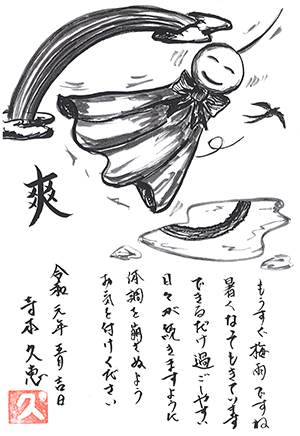 爽
もうすぐ梅雨ですね
暑くなってもきています
できるだけ過ごしやすい
日々が続きますように
体調を崩さぬよう
お気を付けください
令和元年 吉日
寺本 久恵
久